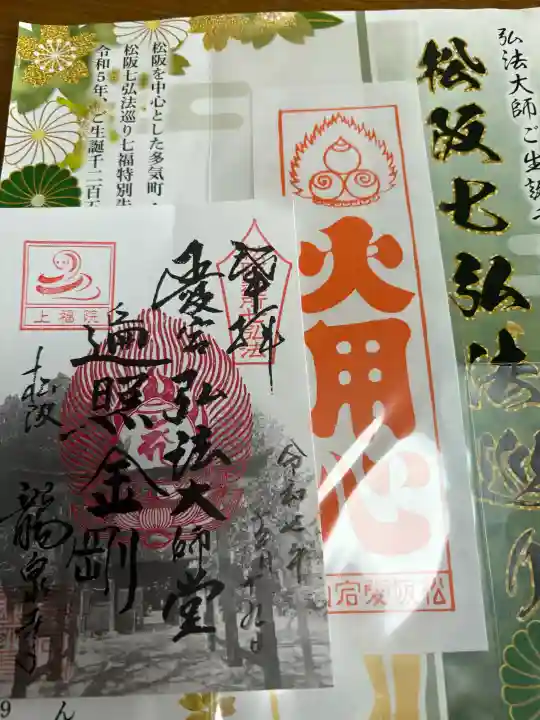 弘法大師ご生誕
松阪七弘法巡り
松阪を中心とした多気町・
松阪七弘法巡り七福特別
令和5年、ご生誕千二百五
火用心
松阪愛宕山
上福院
奉拝
愛宕弘法大師堂
遍照金剛
松阪
龍泉寺
令和七年
十九日
9
ん